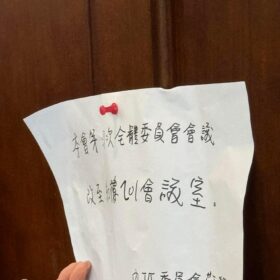 本會第次全體委員會會議
改至樓201會議室。
委員會